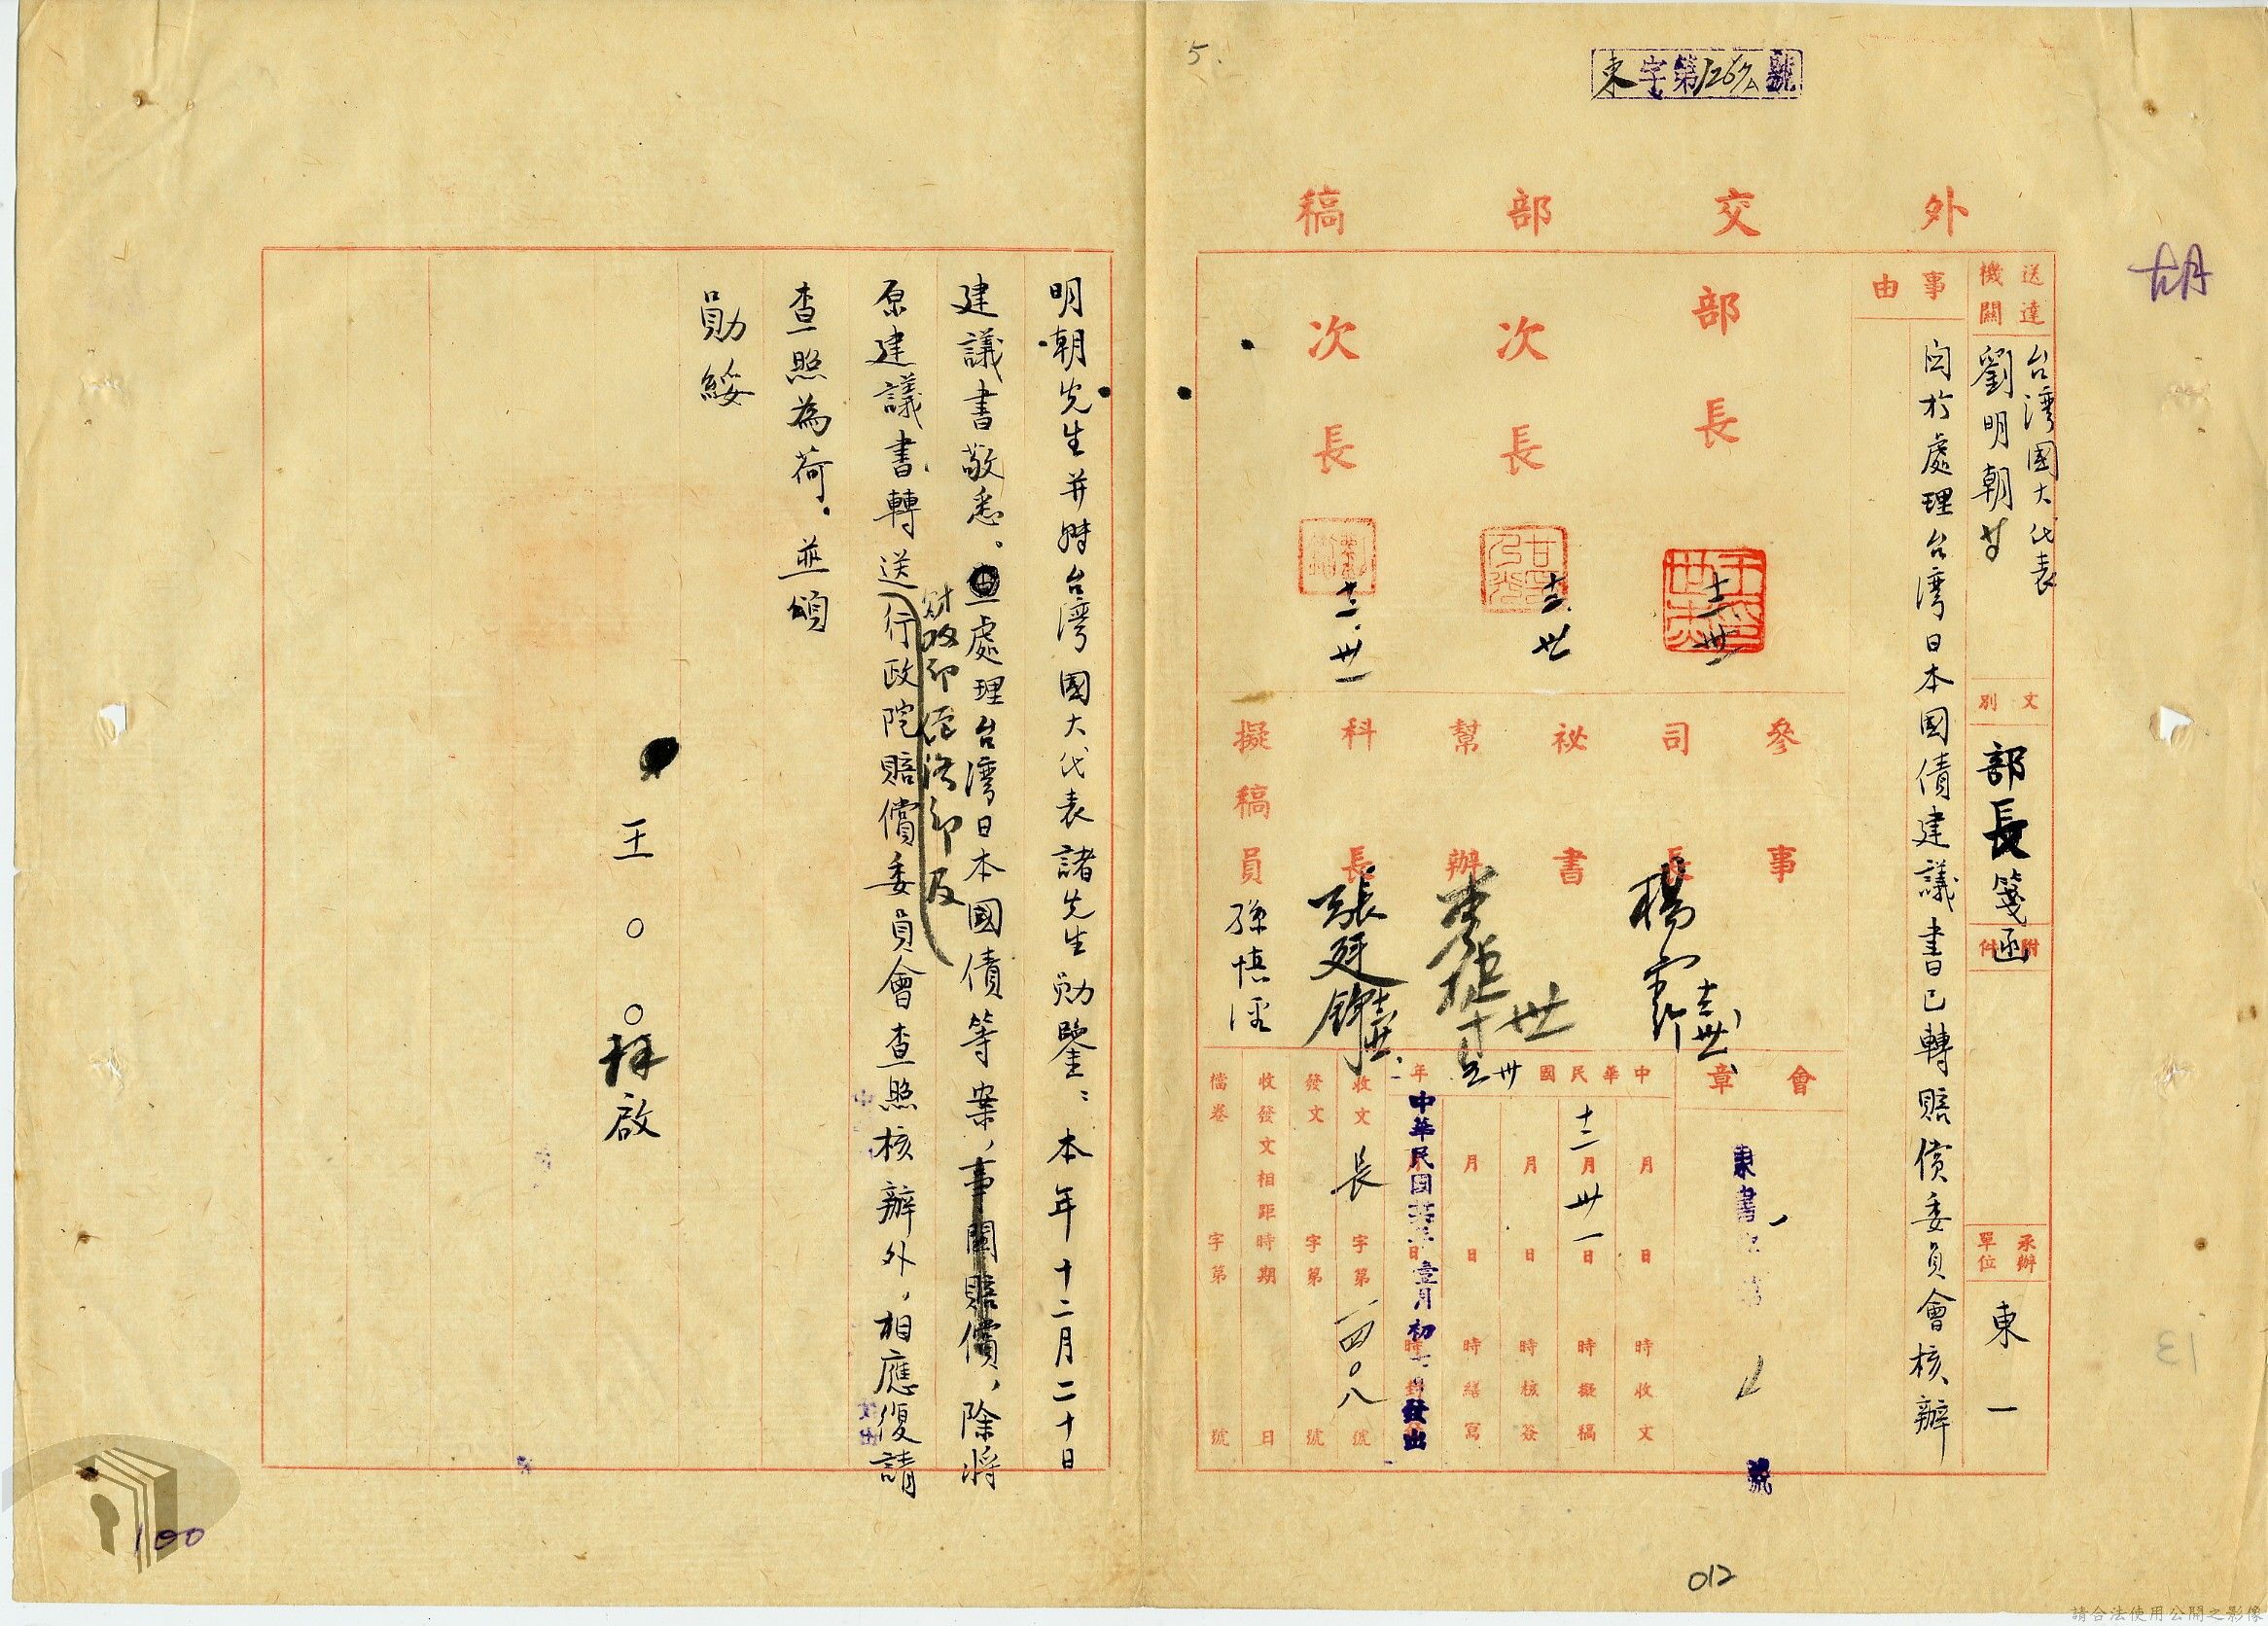 5.
東字第1267號
外交部稿
胡
送達機關
台灣國大代表
劉明朝等
文別
部長箋函
附件
承辦單位
東一
事由
関於處理台湾日本國債建議書已轉賠償委員會核辦
部長
十二、卅一
次長
十二、卅
次長
十二、卅一
參事
司長
楊
祕書
幫辦
科長
張廷錚
擬稿員
孫慎淫
會章
東書
號
中華民國 年
月 日 時收文
十二月卅一日 時擬稿
月 日 時核簽
月 日 時繕寫
中華民國 年壹月初 日發出
收文 長 字第一四〇八號
發文 字第 號
收發文相距時期 日
檔卷 字第 號
明朝先生并轉台灣國大代表諸先生勛鑒：本年十二月二十日
建議書敬悉。処理台灣日本國債等案，事關賠償，除將
財政部經濟部及
原建議書轉送行政院賠償委員會查照核辦外，相應復請
查照為荷。並頌
勛綏
王〇〇拜啟
100
012
13
請合法使用公開之影像